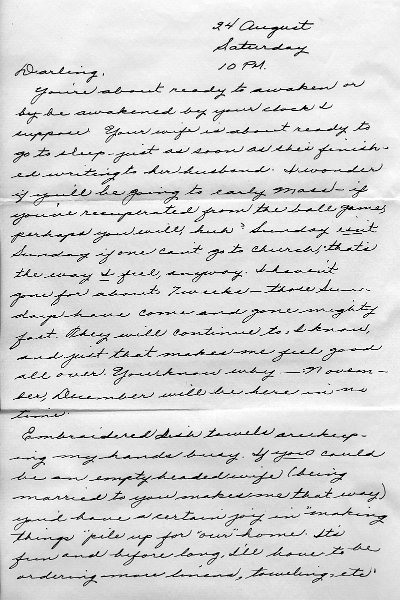 24 August
Saturday
10 P.M.
Darling,
You're about ready to awaken or
by be awakened by your clock I
suppose. Your wife is about ready to
go to sleep - just as soon as she's finish-
ed writing to her husband. I wonder
if you'll be going to early Mass - if
you've recuperated from the ball game,
perhaps you will, huh? Sunday isn't
Sunday if one can't go to church, that's
the way I feel, anyway. I haven't
gone for about 7 weeks - those Sun-
days have come and gone mighty
fast. They will continue to, I know,
and just that makes me feel good
all over. You know why - Novem-
ber, December will be here in no
time.
Embroidered dish towels are keep-
ing my hands busy. If you could
be an empty headed wife (being
married to you makes me that way)
you'd have a certain joy in "making
things" pile up for "our" home. It's
fun and before long, I'll have to be
ordering more linens, toweling, etc.